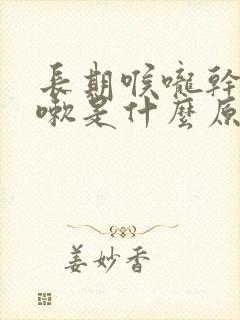 長期喉嚨幹
嗽是什麼原
姜妙香